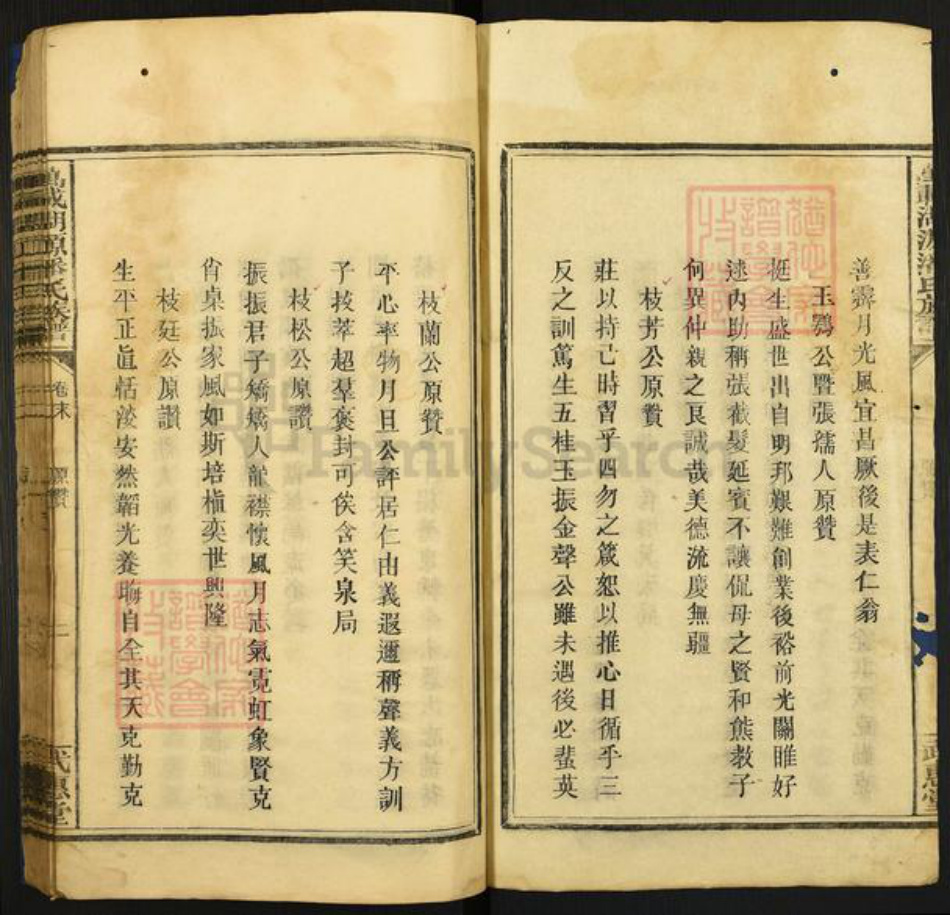 善霽月光風宜昌厥後是表仁翁
玉鶚公暨張孺人原贊
挺生盛世出自明邦艱難創業後裕前光關睢好
逑内助稱張截髮延賓不讓侃母之賢和熊教子
何異仲親之艮誠哉美德流慶無疆
枝芳公原贊
莊以持己時習乎四勿之箴恕以推心日循乎三
反之訓篤生五桂玉振金聲公雖未遇後必蜚英
枝蘭公原贊
平心率物月旦公評居仁由義遐邇稱聲義方訓
子拔萃超羣褒封可俟含笑泉局
枝松公原讚
振振君子矯矯人龍襟懷風月志氣霓虹象賢克
肖桌振家風如斯培植奕世興隆
枝廷公原讚
生平正眞恬淡安然韜光養晦自全其天克勤克
卷末
原贊
武惠堂
FamilySearch